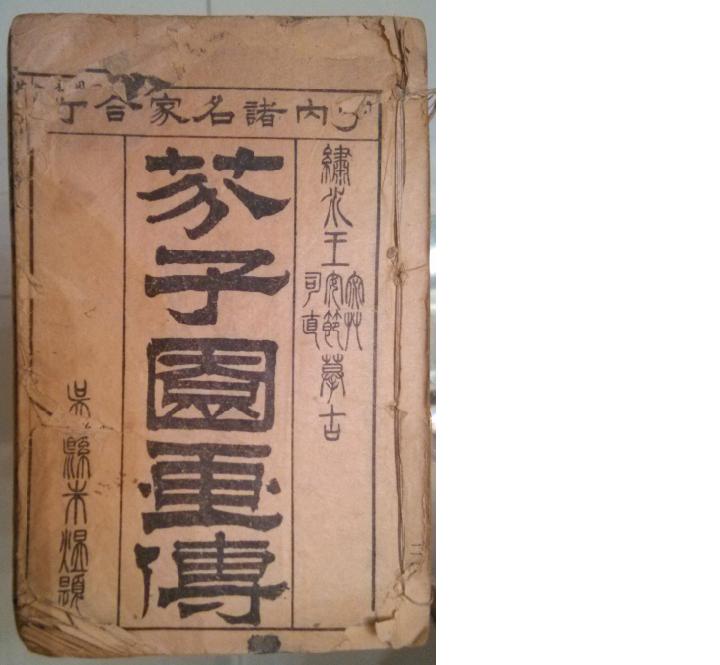 內諸名家合
繡水王
宓艸
安節
司直
摹古
芥子園畫傳
吳縣朱題